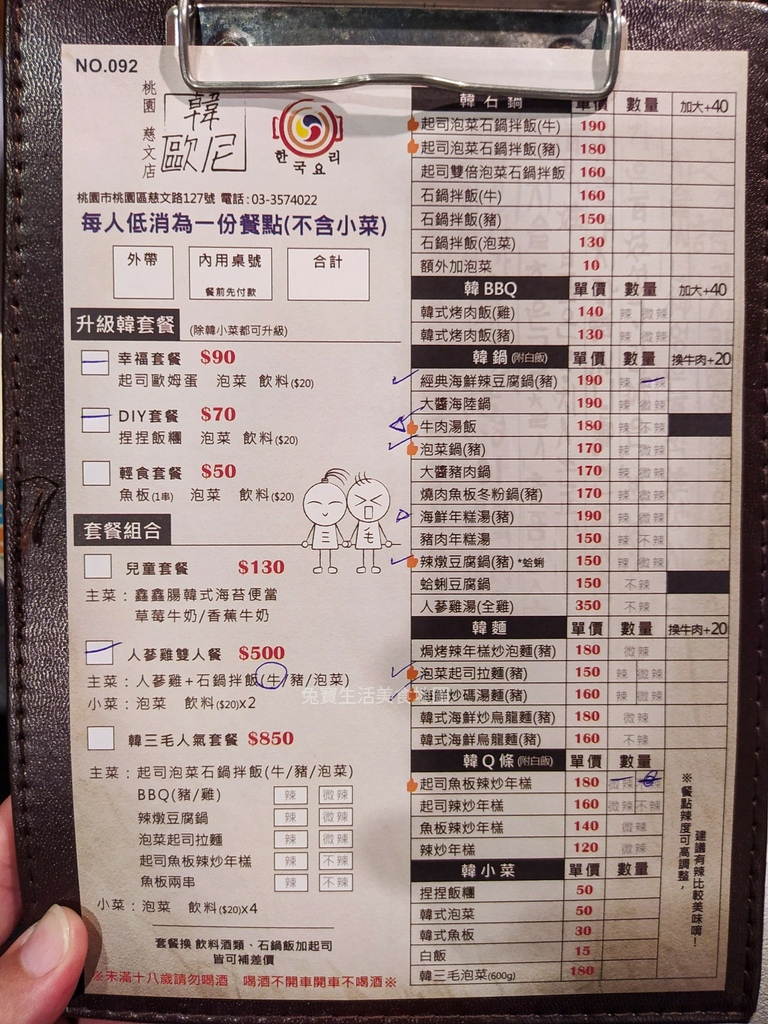 NO.092
桃園 慈文店
韓歐尼
한국요리
桃園市桃園區慈文路127號 電話:03-3574022
每人低消為一份餐點(不含小菜)
外帶
內用桌號
餐前先付款
合計
升級韓套餐 (除韓小菜都可升級)
幸福套餐 $90
起司歐姆蛋 泡菜 飲料($20)
DIY套餐 $70
捏捏飯糰 泡菜 飲料($20)
輕食套餐 $50
魚板(1串) 泡菜 飲料($20)
三 毛
套餐組合
兒童套餐 $130
主菜：鑫鑫腸韓式海苔便當
草莓牛奶/香蕉牛奶
人蔘雞雙人餐 $500
主菜：人蔘雞+石鍋拌飯(牛/豬/泡菜)
小菜：泡菜 飲料($20)x2
韓三毛人氣套餐 $850
主菜：起司泡菜石鍋拌飯(牛/豬/泡菜)
BBQ(豬/雞) 辣 微辣
辣燉豆腐鍋 辣 微辣
泡菜起司拉麵 辣 微辣
起司魚板辣炒年糕 辣 不辣
魚板兩串 辣 不辣
小菜：泡菜 飲料($20)x4
套餐換 飲料酒類、石鍋飯加起司
皆可補差價
※未滿十八歲請勿喝酒 喝酒不開車開車不喝酒※
韓石鍋 單價 數量 加大+40
起司泡菜石鍋拌飯(牛) 190
起司泡菜石鍋拌飯(豬) 180
起司雙倍泡菜石鍋拌飯 160
石鍋拌飯(牛) 160
石鍋拌飯(豬) 150
石鍋拌飯(泡菜) 130
額外加泡菜 10
韓BBQ 單價 數量 加大+40
韓式烤肉飯(雞) 140 辣 微辣
韓式烤肉飯(豬) 130 辣 微辣
韓鍋(附白飯) 單價 數量 換牛肉+20
經典海鮮辣豆腐鍋(豬) 190 辣
大醬海陸鍋 190 辣 微辣
牛肉湯飯 180 辣 不辣
泡菜鍋(豬) 170 辣 微辣
大醬豬肉鍋 170 辣 微辣
燒肉魚板冬粉鍋(豬) 170 辣 微辣
海鮮年糕湯(豬) 190 辣 微辣
豬肉年糕湯 150 辣 不辣
辣燉豆腐鍋(豬) *蛤蜊 150 辣 微辣
蛤蜊豆腐鍋 150 不辣
人蔘雞湯(全雞) 350 不辣
韓麵 單價 數量 換牛肉+20
焗烤辣年糕炒泡麵(豬) 180 微辣
泡菜起司拉麵(豬) 150 辣 微辣
海鮮炒碼湯麵(豬) 160 辣 微辣
韓式海鮮炒烏龍麵(豬) 180 微辣
韓式海鮮烏龍麵(豬) 160 不辣
韓Q條(附白飯) 單價 數量
起司魚板辣炒年糕 180 微辣
起司辣炒年糕 160 微辣 不辣
魚板辣炒年糕 140 微辣
辣炒年糕 120 微辣
韓小菜 單價 數量
捏捏飯糰 50
韓式泡菜 50
韓式魚板 30
白飯 15
韓三毛泡菜(600g) 180
※餐點辣度可高調整，
建議有辣比較美味唷！